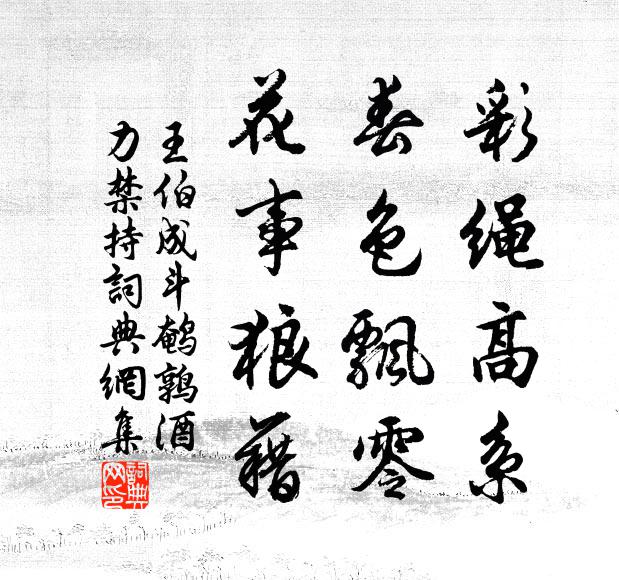 彩绳高系
春色飘零
花事狼藉
王伯成斗鹌鹑酒
力禁持词典網集
詞典
网印